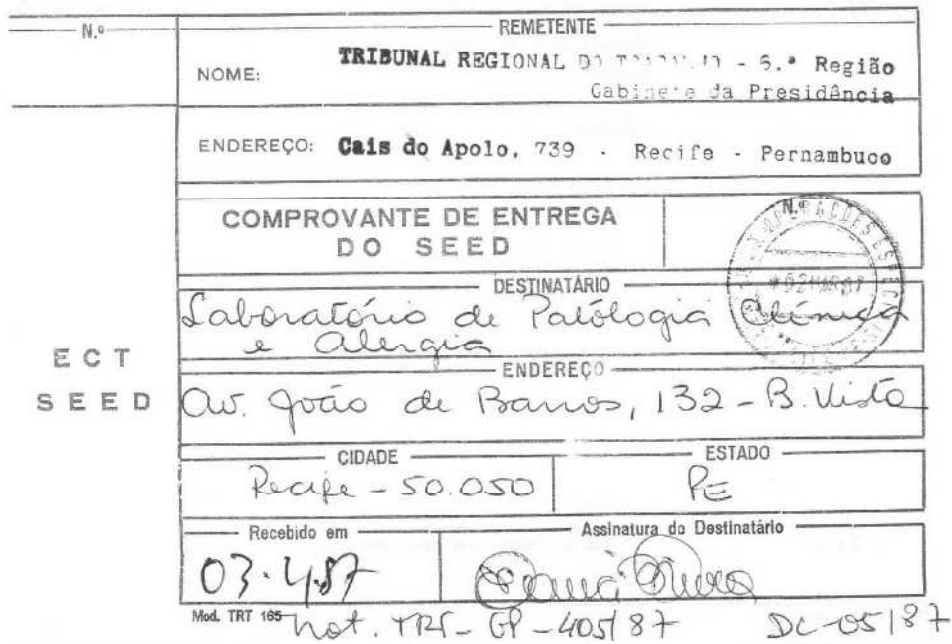 N.º
REMETENTE
NOME: TRIBUNAL REGIONAL DO TRABALHO - 6.ª Região
Gabinete da Presidência
ENDEREÇO: Cais do Apolo, 739 - Recife - Pernambuco
COMPROVANTE DE ENTREGA
DO SEED
N.º
DESTINATÁRIO
Laboratório de Patologia Clínica
e Alergia
ECT
SEED
ENDEREÇO
Av. João de Barros, 132 - B. Vista
CIDADE
Recife - 50.050
ESTADO
PE
Recebido em
03.4.87
Assinatura do Destinatário
Mod. TRT 165
Not. TRT - GP - 405/87 DC-05/87